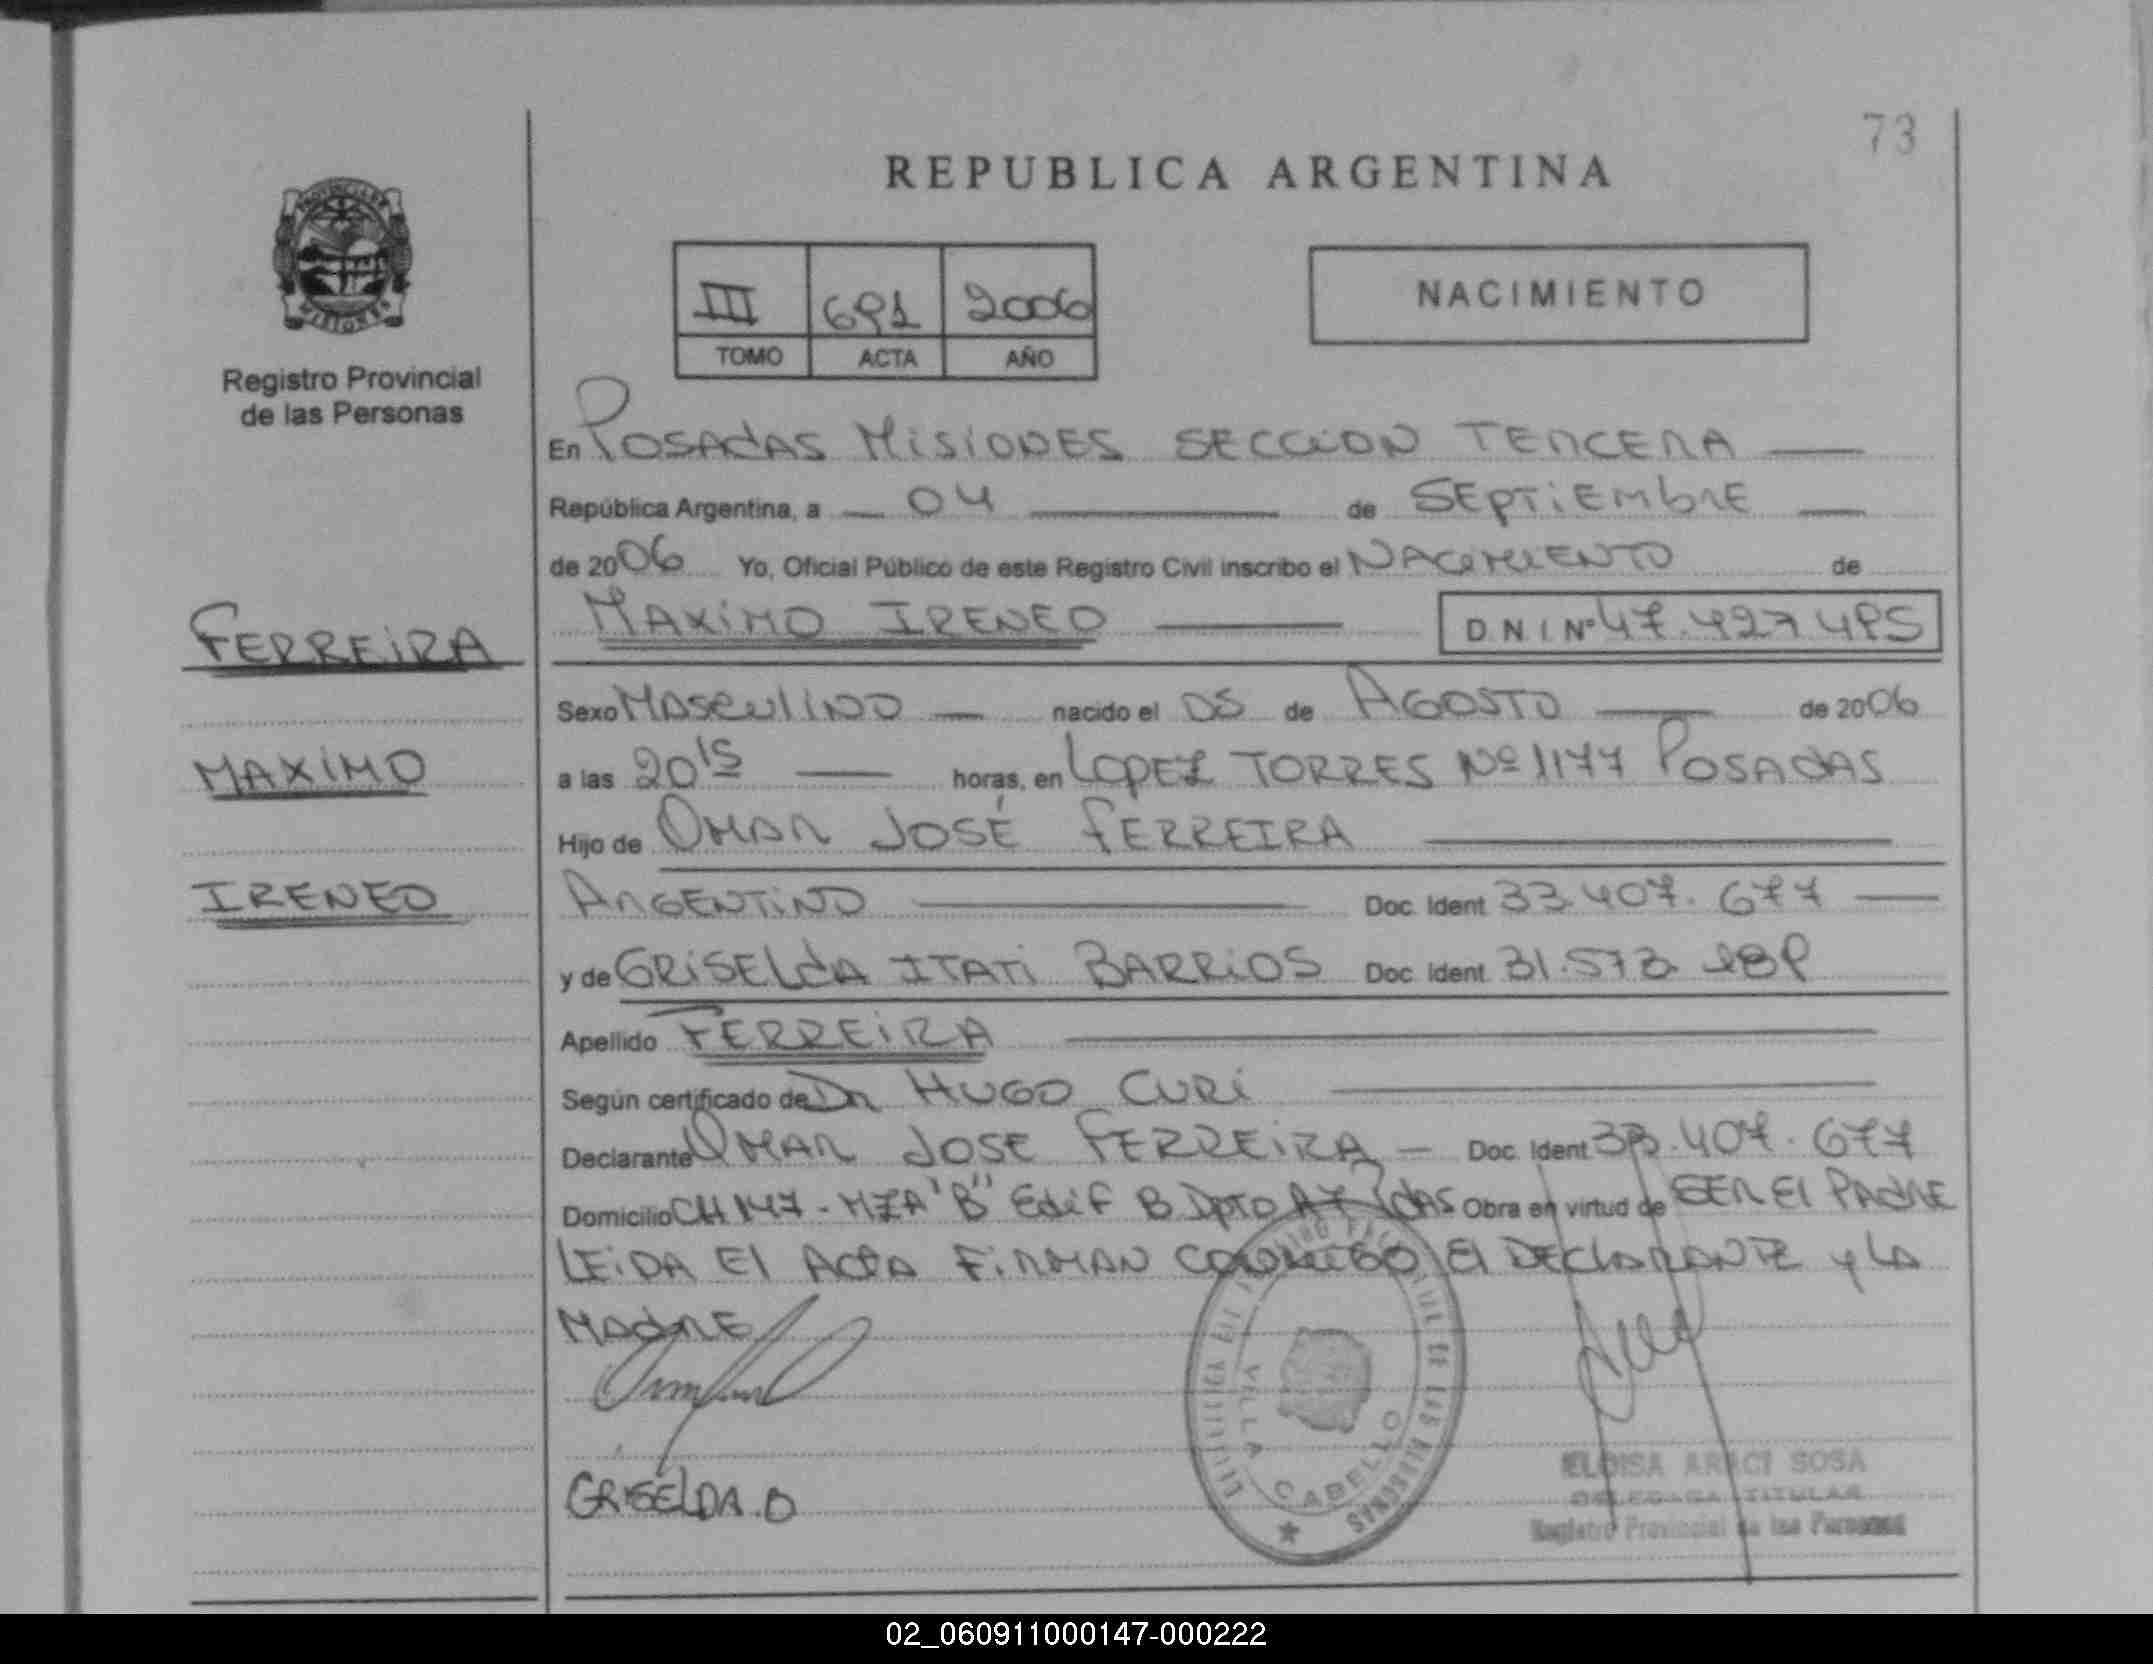 73
REPUBLICA ARGENTINA
III 691 2006
TOMO ACTA AÑO
NACIMIENTO
Registro Provincial
de las Personas
En POSADAS MISIONES SECCION TERCERA
República Argentina, a 04 de SEPTIEMBRE
de 2006 Yo, Oficial Público de este Registro Civil inscribo el NACIMIENTO de
MAXIMO IRENEO DNI Nº 47.427495
FERREIRA
MAXIMO
IRENEO
Sexo MASCULINO nacido el 05 de AGOSTO de 2006
a las 20 15 horas, en LOPEZ TORRES Nº 1177 POSADAS
Hijo de OMAR JOSÉ FERREIRA
ARGENTINO Doc. Ident 33.407.677
y de GRISELDA ITATI BARRIOS Doc. Ident 31.573.189
Apellido FERREIRA
Según certificado de Dr HUGO CURI
Declarante OMAR JOSE FERREIRA Doc. Ident 33.407.677
Domicilio CH 147 - MZA "B" Edif B Dpto A7 Obra en virtud de SER El PADRE
LEIDA El ACTA FIRMAN CONMIGO El DECLARANTE y LA
MADRE
GRISELDA.B
VILLA CABELLO
ELOISA ARACI SOSA
DELEGADA TITULAR
Registro Provincial de las Personas
02_060911000147-000222